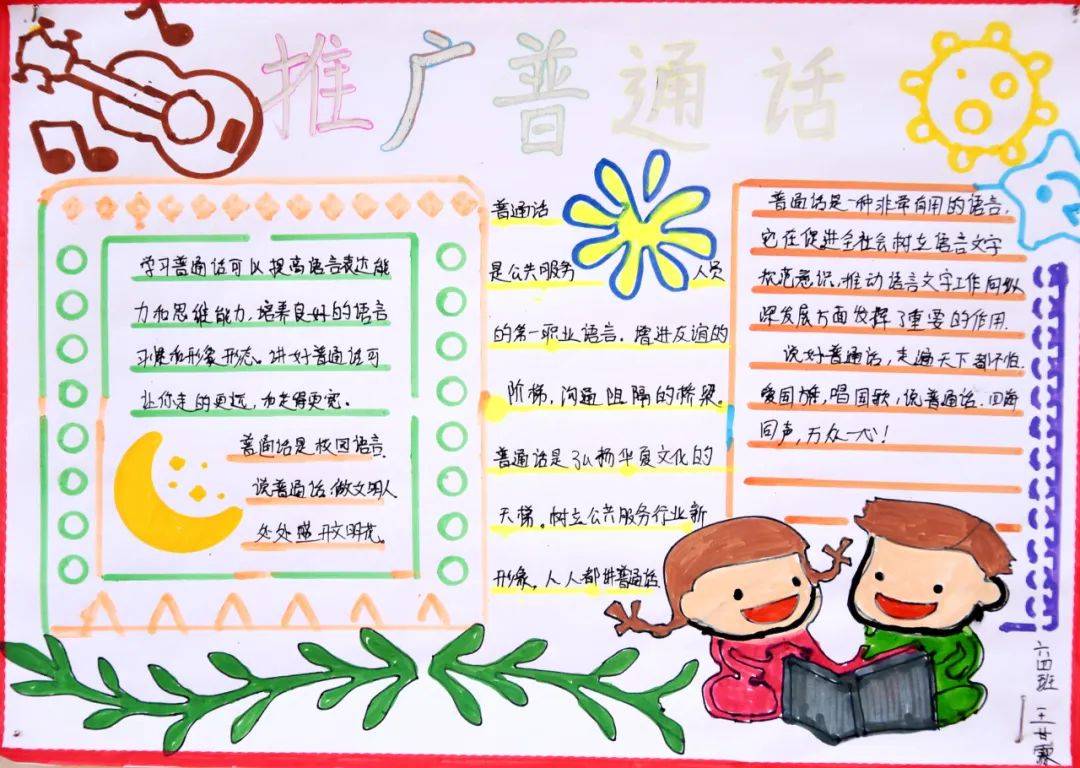 推广普通话
学习普通话可以提高语言表达能
力和思维能力,培养良好的语言
习惯和形象形态。讲好普通话可
让你走的更远,加走得更宽。
普通话是校园语言
说普通话,做文明人
处处盛开文明花。
普通话
是公共服务 人员
的第一职业语言。增进友谊的
阶梯,沟通阻隔的桥梁。
普通话是弘扬华夏文化的
天梯。树立公共服务行业新
形象,人人都讲普通话
普通话是一种非常有用的语言,
它在促进全社会树立语言文字
规范意识,推动语言文字工作向纵
深发展方面发挥了重要的作用.
说好普通话,走遍天下都不怕.
爱国旗,唱国歌,说普通话.四海
同声,万众一心!
六四班